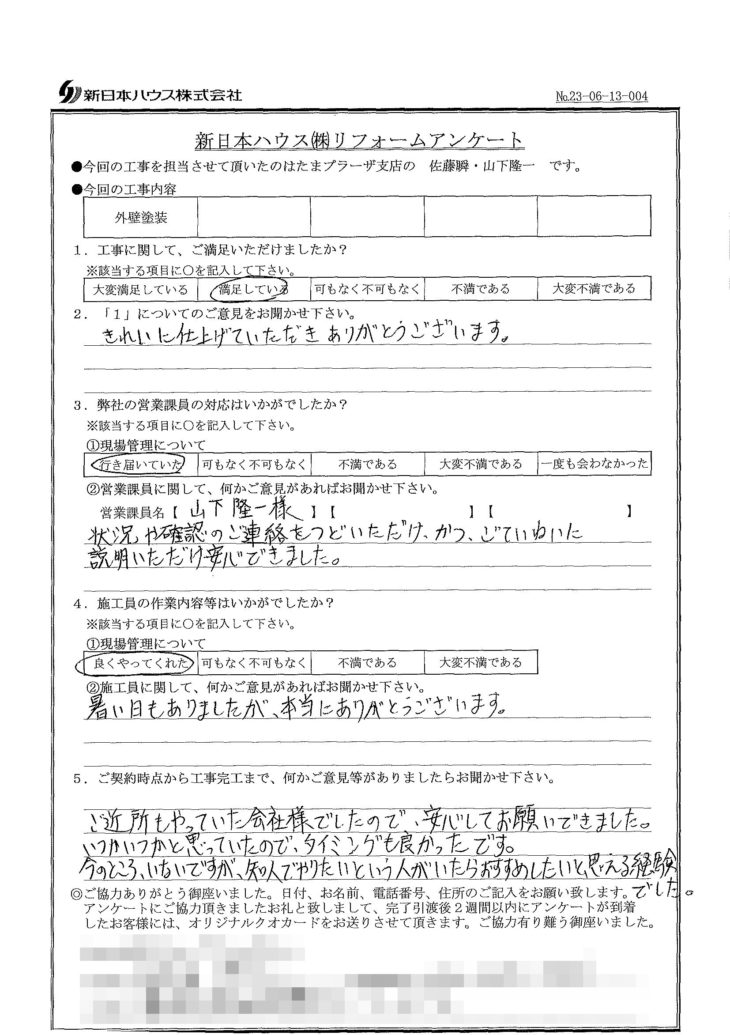 新日本ハウス株式会社
№23-06-13-004
新日本ハウス㈱リフォームアンケート
●今回の工事を担当させて頂いたのはたまプラーザ支店の 佐藤瞬・山下隆一 です。
●今回の工事内容
外壁塗装
1．工事に関して、ご満足いただけましたか？
※該当する項目に○を記入して下さい。
大変満足している 満足している 可もなく不可もなく 不満である 大変不満である
2．「1」についてのご意見をお聞かせ下さい。
きれいに仕上げていただき ありがとうございます。
3．弊社の営業課員の対応はいかがでしたか？
※該当する項目に○を記入して下さい。
①現場管理について
行き届いていた 可もなく不可もなく 不満である 大変不満である 一度も会わなかった
②営業課員に関して、何かご意見があればお聞かせ下さい。
営業課員名【 山下 隆一様 】【 】【 】
状況や確認のご連絡をつどいただけ、かつ、ごていねいに
説明いただけ安心できました。
4．施工員の作業内容等はいかがでしたか？
※該当する項目に○を記入して下さい。
①現場管理について
良くやってくれた 可もなく不可もなく 不満である 大変不満である
②施工員に関して、何かご意見があればお聞かせ下さい。
暑い日もありましたが、本当にありがとうございます。
5．ご契約時点から工事完工まで、何かご意見等がありましたらお聞かせ下さい。
ご近所もやっていた会社様でしたので、安心してお願いできました。
いつかいつかと思っていたので、タイミングも良かったです。
今のところ、いないですが、知人でやりたいという人がいたらおすすめしたいと思える経験
でした。
◎ご協力ありがとう御座いました。日付、お名前、電話番号、住所のご記入をお願い致します。
アンケートにご協力頂きましたお礼と致しまして、完了引渡後２週間以内にアンケートが到着
したお客様には、オリジナルクオカードをお送りさせて頂きます。ご協力有り難う御座いました。